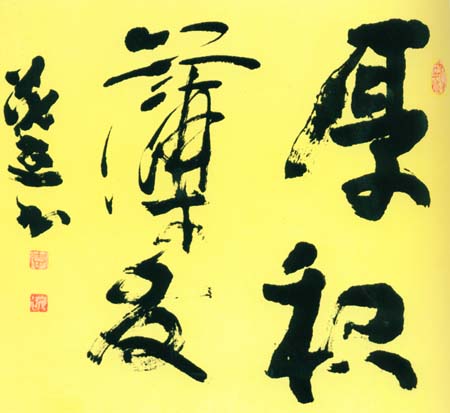 厚积
薄发
书